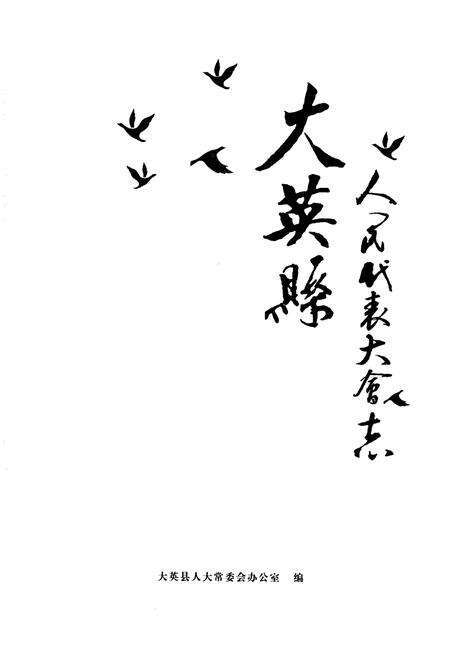 大英縣
人民代表大會志
大英县人大常委会办公室 编